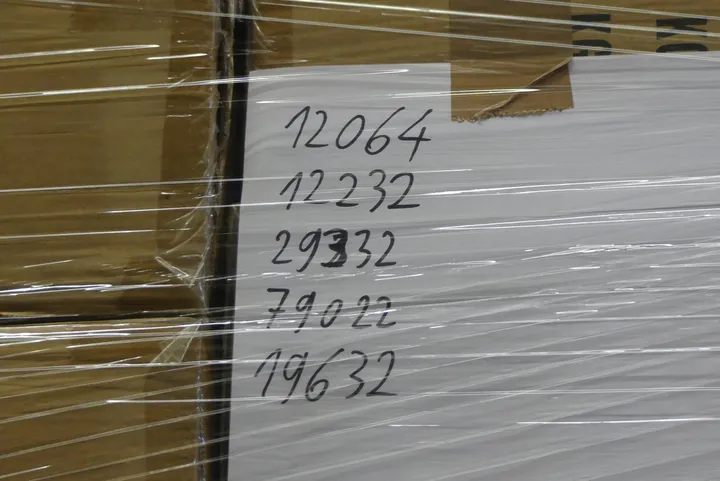 KG KG
12064
12232
29332
79022
19632